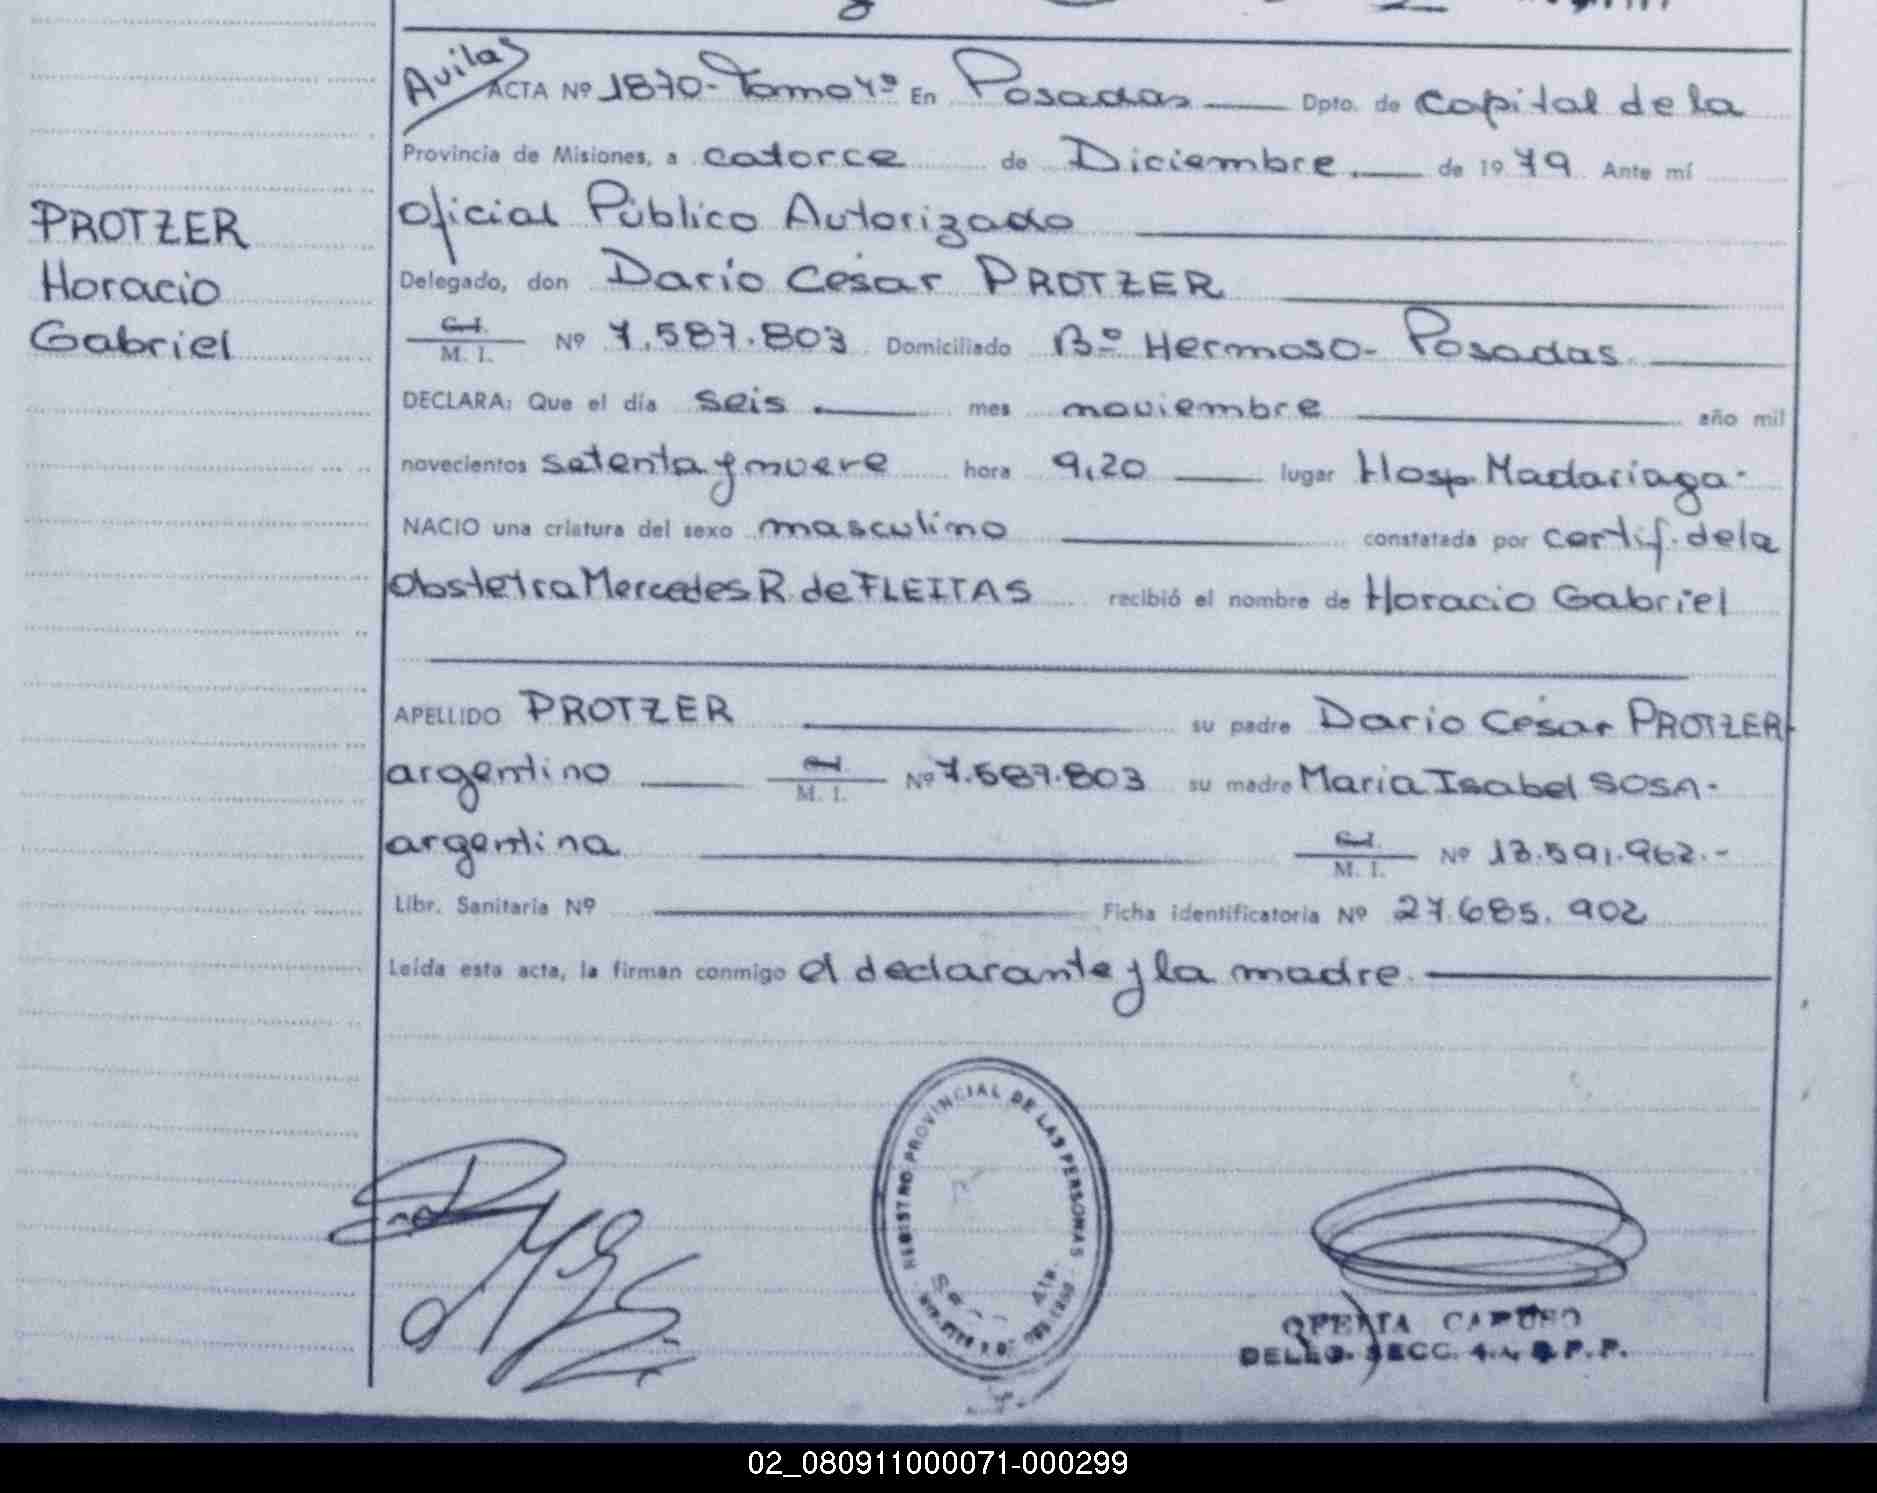 Avilas
ACTA Nº 1870- Tomo 4º En Posadas Dpto. de Capital de la
Provincia de Misiones, a catorce de Diciembre. de 19 79. Ante mí
Oficial Público Autorizado
Delegado, don Darío César PROTZER
C.I. M. I. Nº 7.587.803 Domiciliado Bº Hermoso- Posadas
DECLARA: Que el día seis mes noviembre año mil
novecientos setenta y nueve hora 9,20 lugar Hosp. Madariaga-
NACIO una criatura del sexo masculino constatada por certif. de la
Obstetra Mercedes R. de FLEITAS recibió el nombre de Horacio Gabriel
APELLIDO PROTZER su padre Dario César PROTZER
argentino C.I. M. I. Nº 7.587.803 su madre Maria Isabel SOSA-
argentina C.I. M. I. Nº 13.591.962.-
Libr. Sanitaria Nº Ficha identificatoria Nº 27.685.902
Leída esta acta, la firman conmigo el declarante y la madre.
PROTZER
Horacio
Gabriel
REGISTRO PROVINCIAL DE LAS PERSONAS
CAPUSO
DELEG. SECC. 4.
02_080911000071-000299